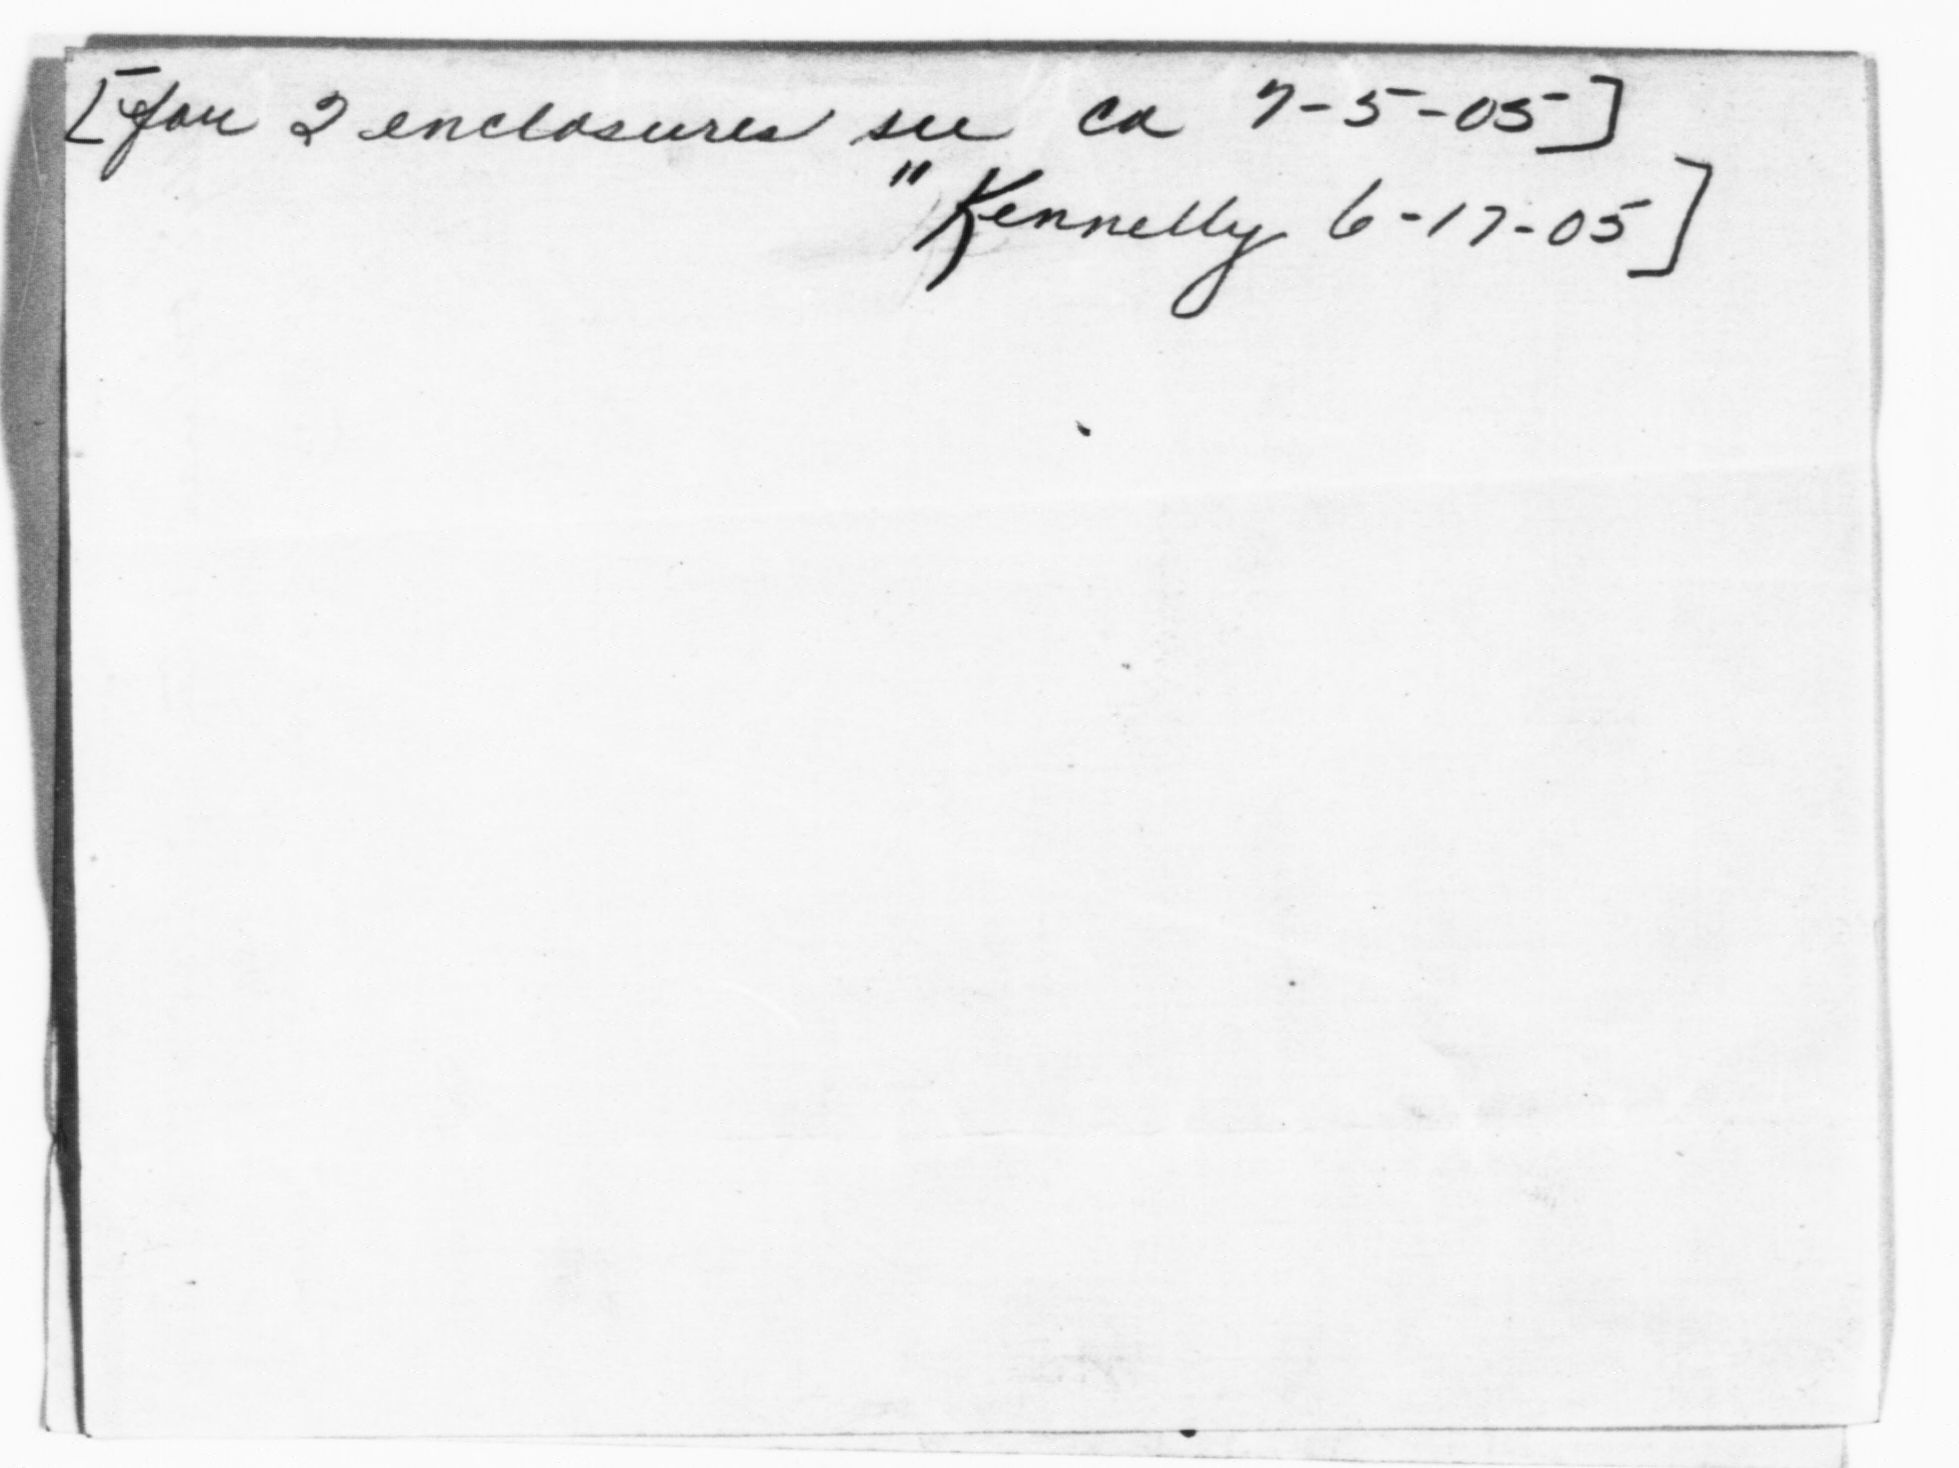 [for 2 enclosures see ca 7-5-05]
" Kennelly 6-17-05]